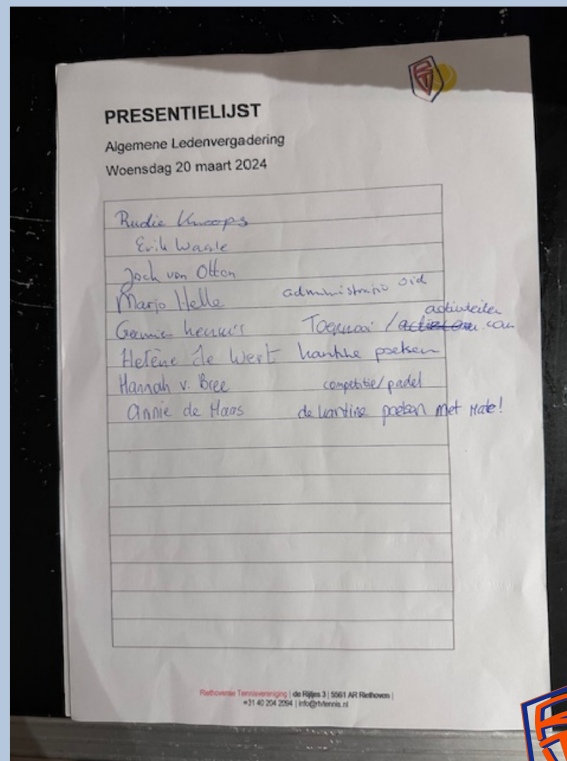 PRESENTIELIJST
Algemene Ledenvergadering
Woensdag 20 maart 2024
Rudie Knoops
Erik Waale
Jock van Otton
Marjo Helle administratie
Toernooi / activiteiten
Helène de Wert kantine poetsen
Hannah v. Bree competitie/padel
Annie de Maas de kantine poetsen met Mate!
Riethovense Tennisvereniging | de Rijtjes 3 | 5561 AR Riethoven |
+31 40 204 2094 | info@rtvtennis.nl